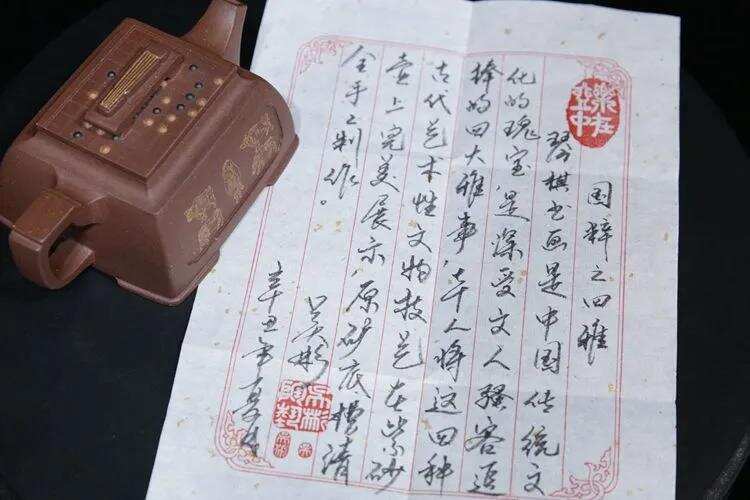 樂在壺中
国粹之四雅
琴棋书画是中国传统文
化的瑰宝是深受文人骚客追
捧的四大雅事,本人将这四种
古代艺术性文物技艺在紫砂
壶上完美展示,原矿底槽清
全手工制作。
吴彬
辛丑年夏